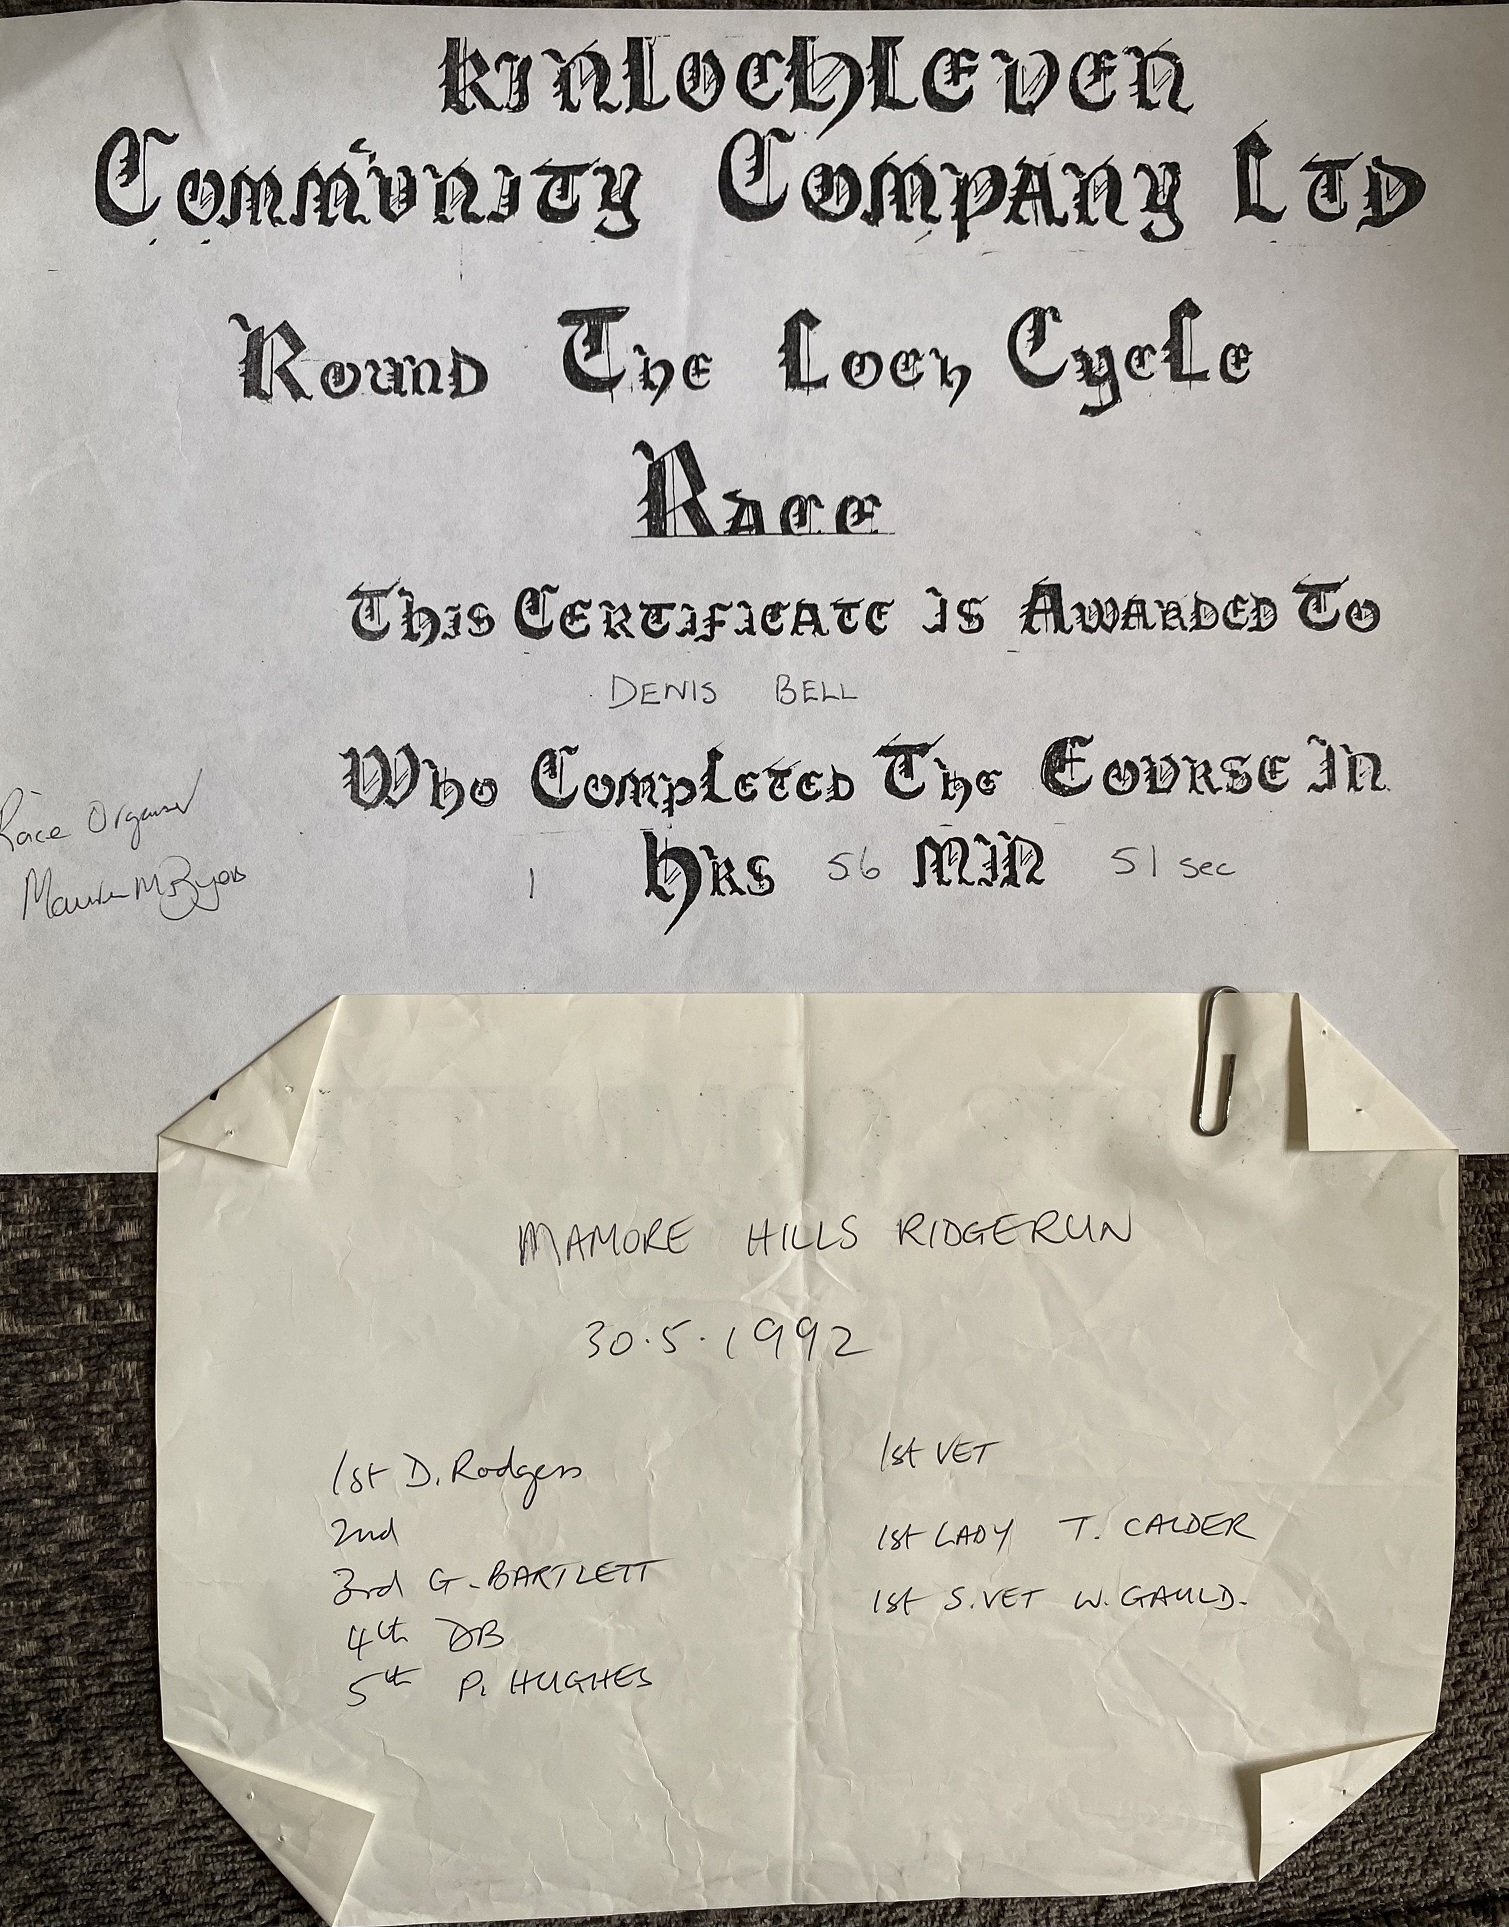 KINLOCHLEVEN
COMMUNITY COMPANY LTD
ROUND THE LOCH CYCLE
RACE
THIS CERTIFICATE IS AWARDED TO
DENIS BELL
WHO COMPLETED THE COURSE IN
1 HRS 56 MIN 51 sec
Race Organiser
MAMORE HILLS RIDGERUN
30.5.1992
1st D. Rodgers
2nd
3rd G. BARTLETT
4th DB
5th P. HUGHES
1st VET
1st LADY T. CALDER
1st S. VET W. GAULD.